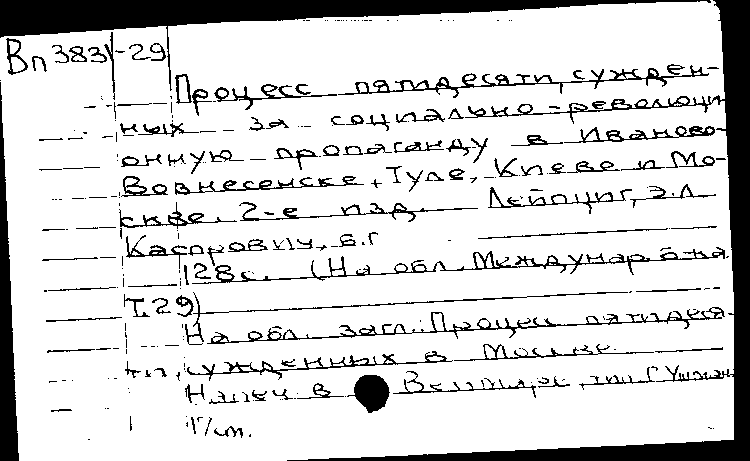 Вп 3831-29
Процесс пятидесяти, сужден-
ных за социально-революци
онную пропаганду в Иваново-
Вознесенске, Туле, Киеве и Мо-
скве. 2-е изд. Лейпциг, Э.Л.
Каспрович, б.г.
128с. (На обл. Междунар. б-ка
т.29)
На обл. загл.: Процесс пятидеся-
ти, сужденных в Москве.
Напеч в Веймаре, тип Г Ушман.